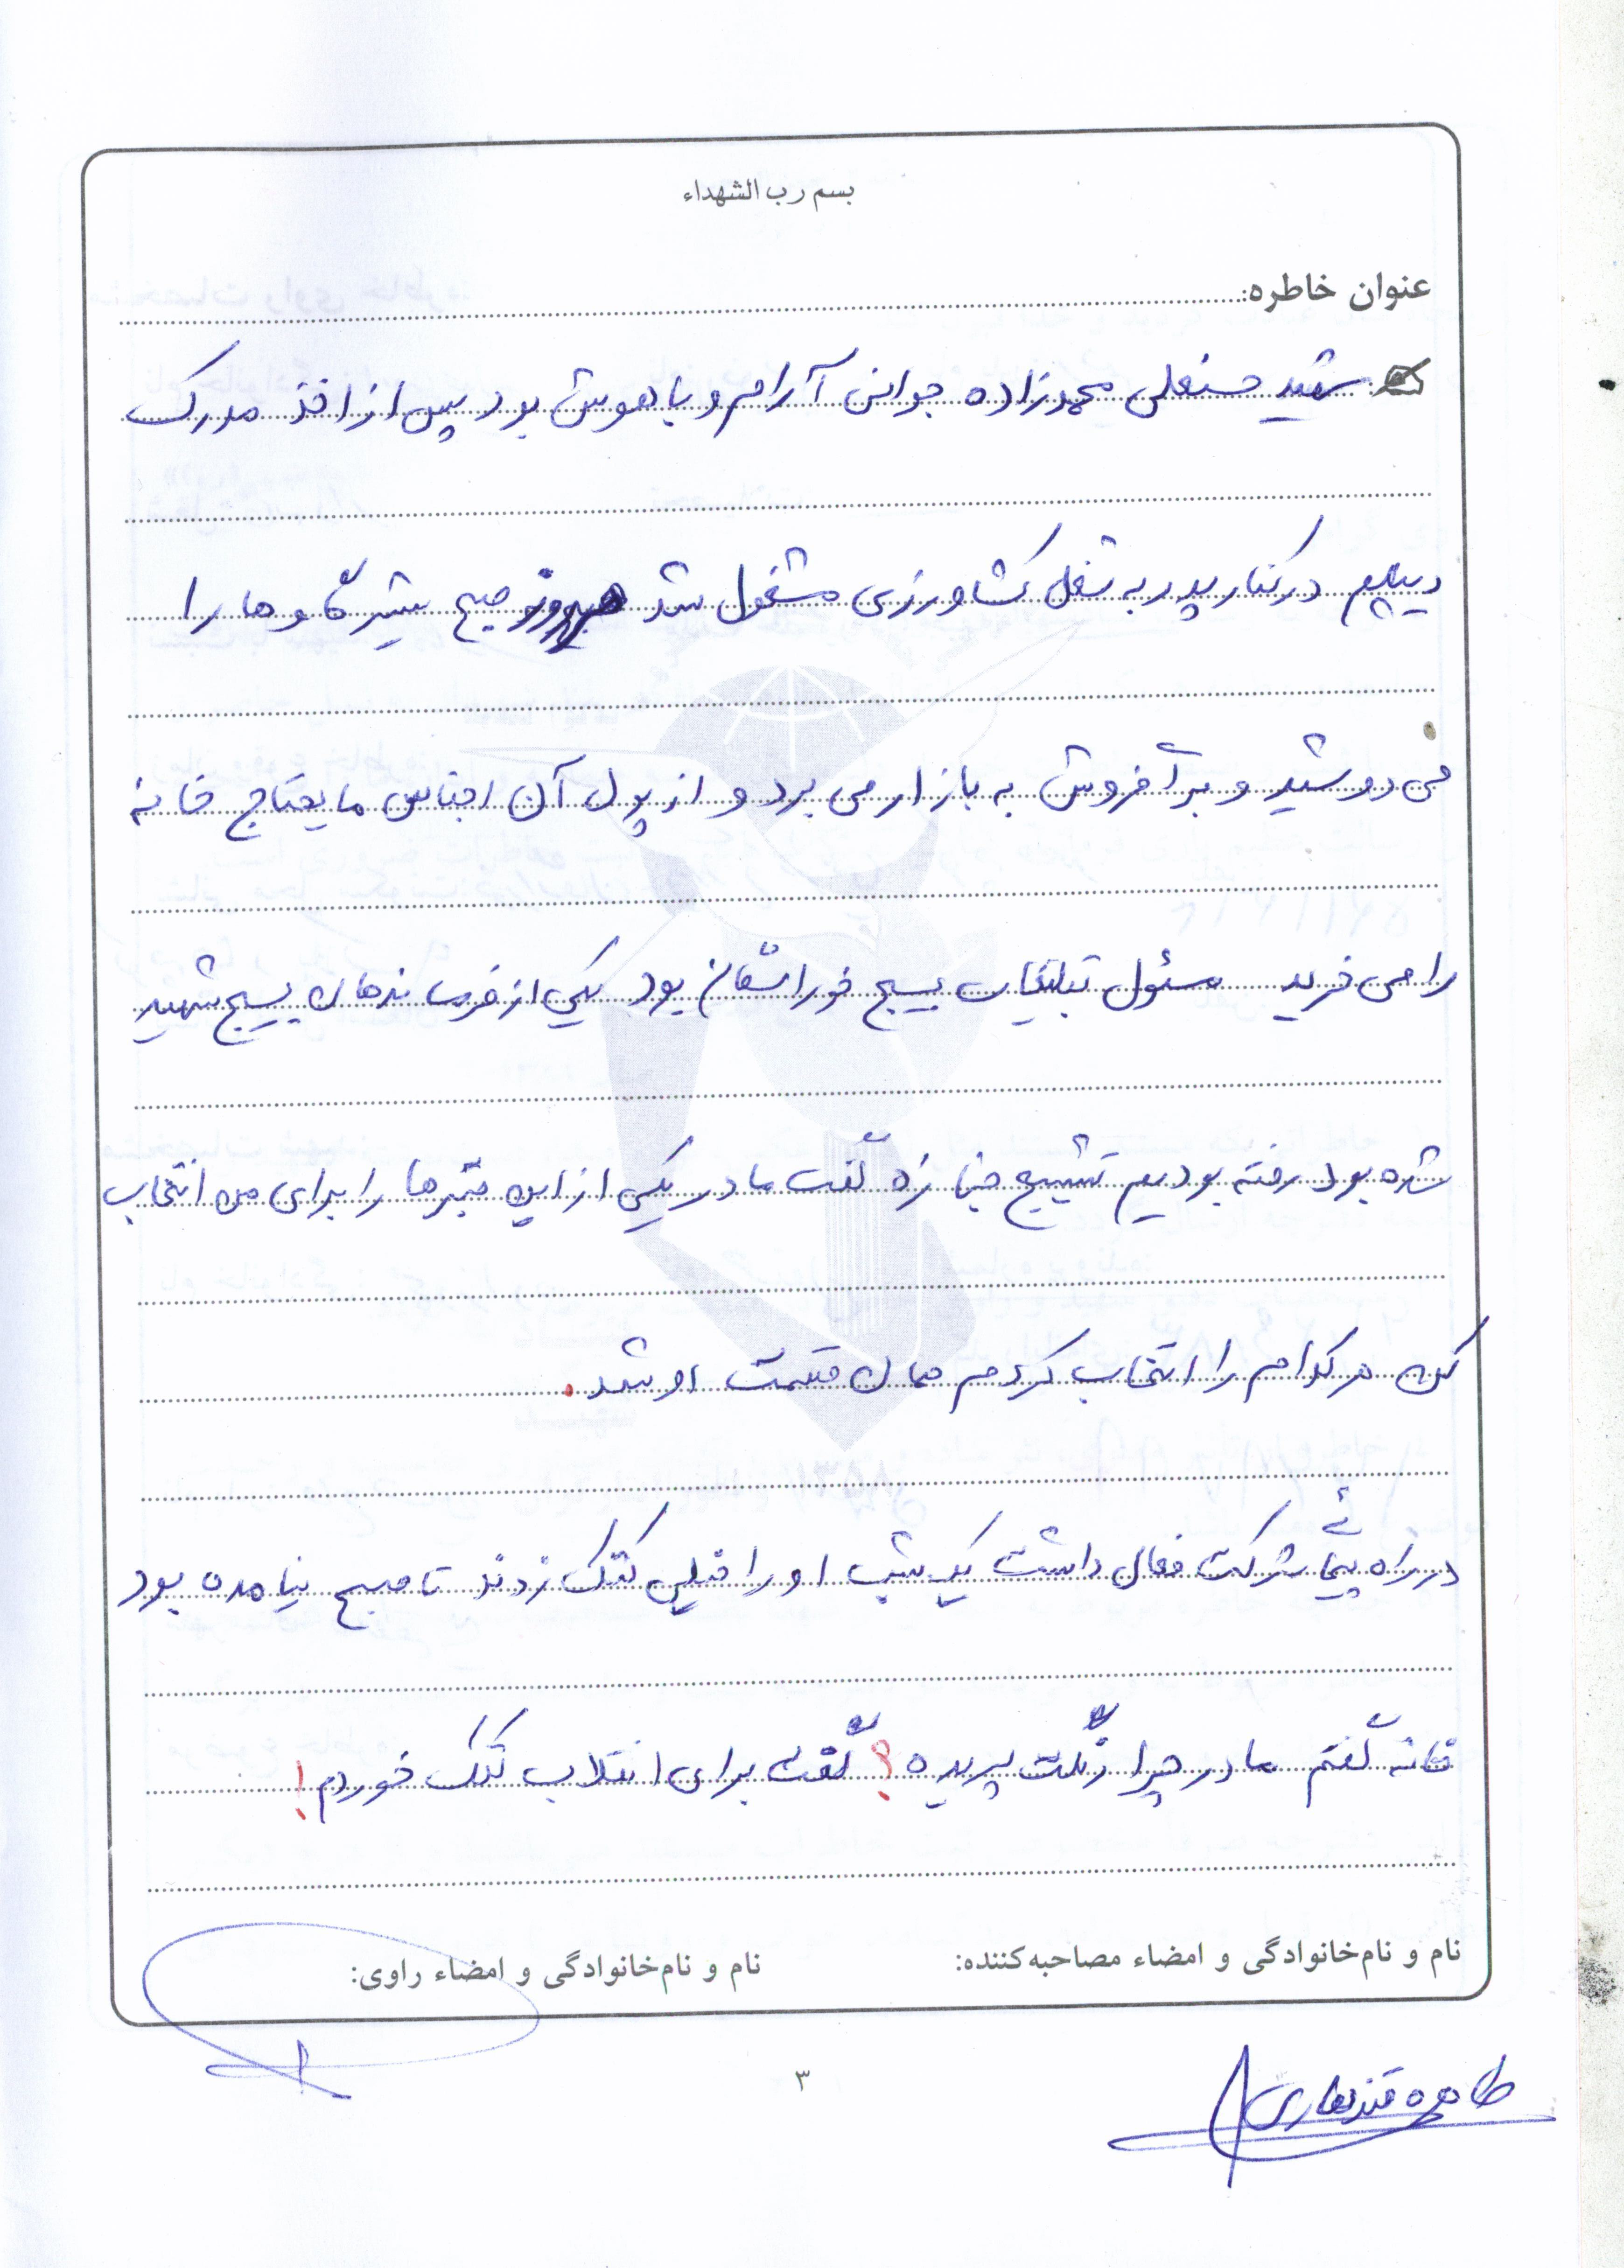 بسم رب الشهداء
عنوان خاطره:
شهید حسنعلی محمدزاده جوانی آرام و باهوش بود پس از اخذ مدرک
دیپلم در کنار پدر به شغل کشاورزی مشغول شد هر روز صبح شیر گاوها را
می دوشید و برا فروش به بازار می برد و از پول آن اجناس مایحتاج خانه
را می خرید مسئول تبلیغات بسیج خوراسگان بود یکی از فرماندهان بسیج شهید
شده بود رفته بودیم تشییع جنازه گفت مادر یکی از این قبرها را برای من انتخاب
کن هر کدام را انتخاب کردم همان قسمت او شد.
در راه پیمائی شرکت فعال داشت یک شب او را خیلی کتک زدند تا صبح نیامده بود
خانه گفتم مادر چرا رنگت پریده؟ گفت برای انقلاب کتک خوردم!
نام و نام‌خانوادگی و امضاء مصاحبه‌کننده: نام و نام‌خانوادگی و امضاء راوی:
۳
طاهره قندهاری